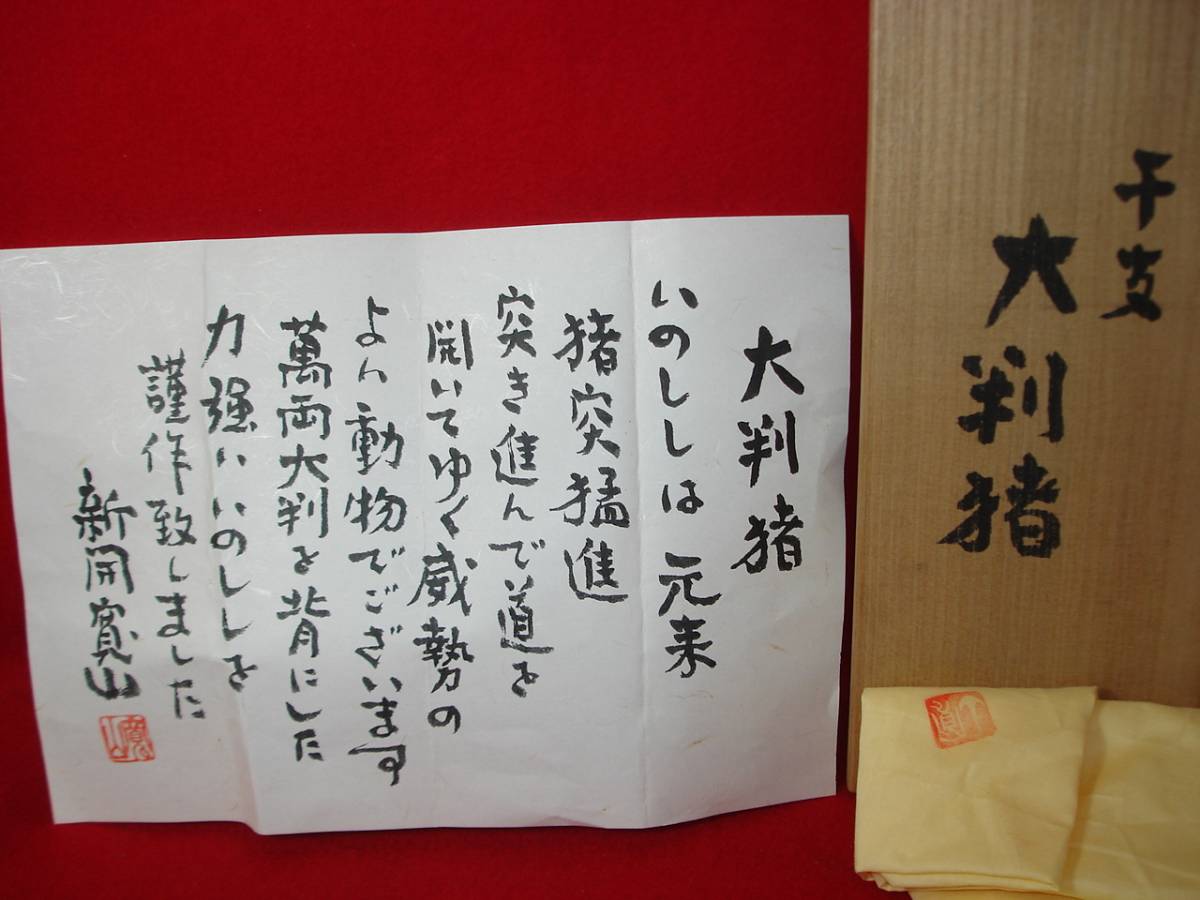 干支
大判猪
大判猪
いのししは元来
猪突猛進
突き進んで道を
開いてゆく威勢の
よい動物でございます
萬両大判を背にした
力強いいのししを
謹作致しました
新開寛山
寛山